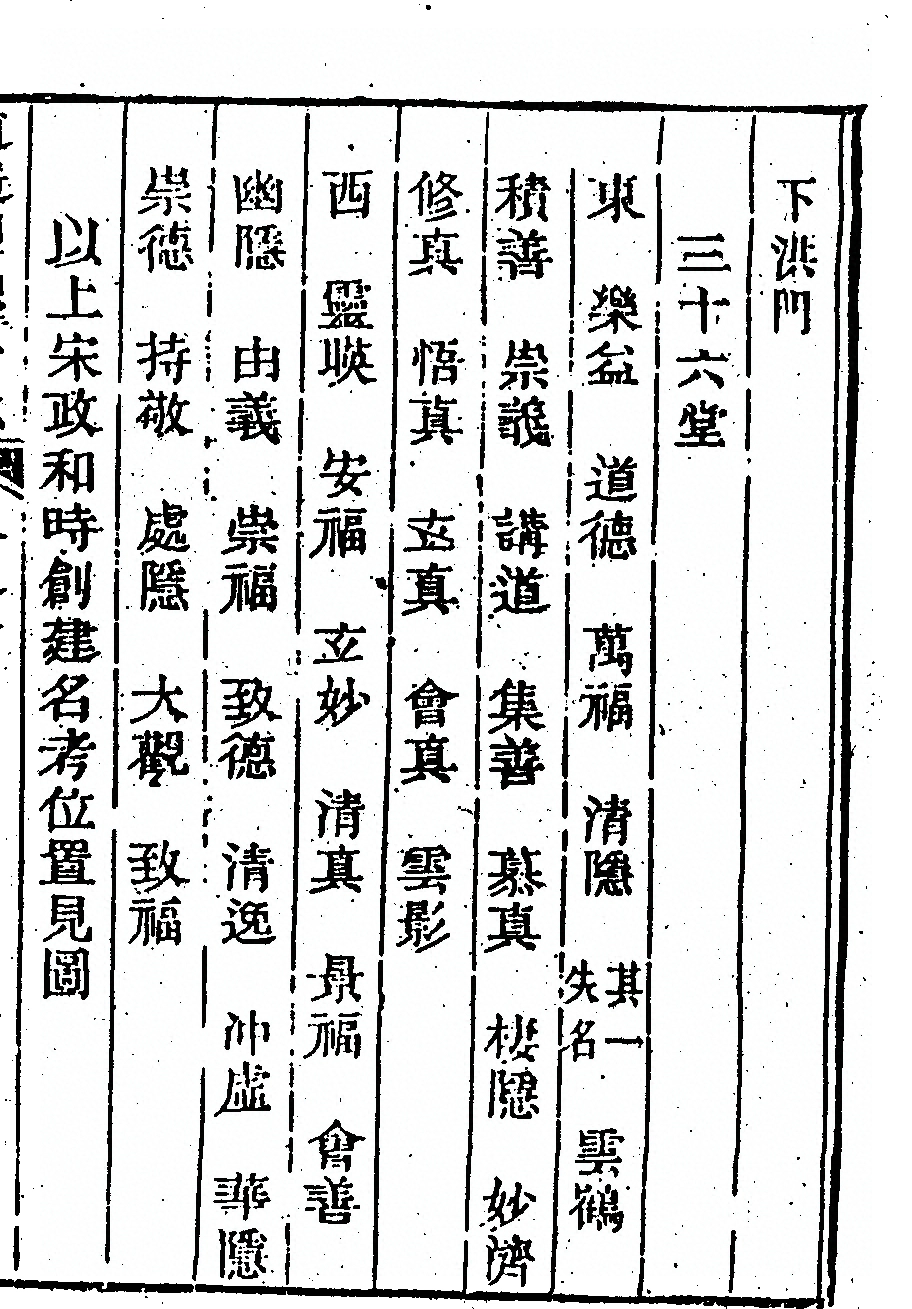 下洪門
三十六堂
東 樂益 道德 萬福 清隱 其一失名 雲鶴
積善 崇義 講道 集善 慕真 棲隱 妙濟
修真 悟真 玄真 會真 雲影
西 靈暎 安福 玄妙 清真 景福 會善
幽隱 由義 崇福 致德 清逸 冲虛 華隱
崇德 持敬 處隱 大觀 致福
以上宋政和時創建名考位置見圖